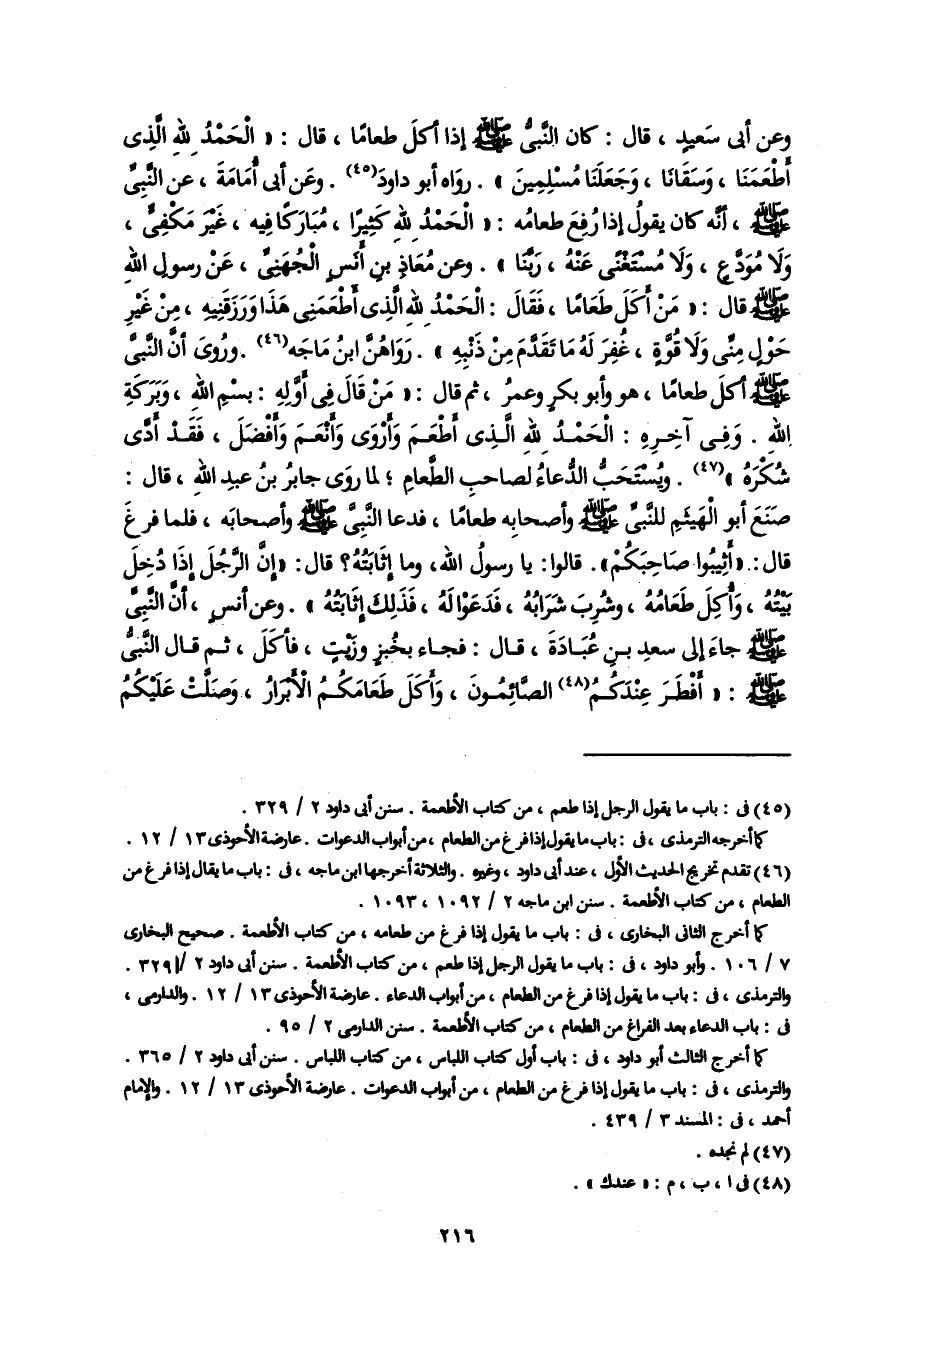 وعن أبى سَعيدٍ ، قال : كان النَّبىُّ ﷺ إذا أكلَ طعامًا ، قال : « الْحَمْدُ لِلهِ الَّذِى
أَطْعَمَنَا ، وَسَقَانَا ، وَجَعَلَنَا مُسْلِمِينَ » . روَاه أبو داودَ(٤٥) . وعَن أبى أُمَامَةَ ، عن النَّبِىِّ
ﷺ ، أنَّه كان يقولُ إذا رُفِعَ طعامُه : « الْحَمْدُ لِلهِ كَثِيرًا ، مُبَارَكًا فِيه ، غَيْرَ مَكْفِىٍّ ،
وَلَا مُوَدَّعٍ ، وَلَا مُسْتَغْنًى عَنْهُ ، رَبَّنَا » . وعن مُعَاذِ بنِ أنَسٍ الْجُهَنِىِّ ، عَنْ رسولِ اللهِ
ﷺ قال : « مَنْ أَكَلَ طَعَامًا ، فَقَالَ : الْحَمْدُ لِلهِ الَّذِى أَطْعَمَنِى هَذَا وَرَزَقَنِيهِ ، مِنْ غَيْرِ
حَوْلٍ مِنِّى وَلَا قُوَّةٍ ، غُفِرَ لَهُ مَا تَقَدَّمَ مِنْ ذَنْبِهِ » . رَوَاهُنَّ ابنُ مَاجَه(٤٦) . ورُوىَ أنَّ النَّبىَّ
ﷺ أكلَ طعامًا ، هو وأبو بكرٍ وعمرُ ، ثم قال : « مَنْ قَالَ فِى أَوَّلِهِ : بِسْمِ اللهِ ، وَبَرَكَةِ
اللهِ . وَفِى آخِرِهِ : الْحَمْدُ لِلهِ الَّذِى أَطْعَمَ وَأَرْوَى وَأَنْعَمَ وَأَفْضَلَ ، فَقَدْ أَدَّى
شُكْرَهُ »(٤٧) . ويُسْتَحَبُّ الدُّعاءُ لصاحبِ الطَّعامِ ؛ لما روَى جابرُ بنُ عبدِ اللهِ ، قال :
صنَعَ أبو الْهَيْثَمِ للنَّبىِّ ﷺ وأصحابِه طعامًا ، فدعا النَّبىَّ ﷺ وأصحابَه ، فلما فرغَ
قال : « أَثِيبُوا صَاحِبَكُمْ» . قالوا : يا رسولُ اللهِ، وما إثَابَتُهُ؟ قال : «إنَّ الرَّجُلَ إذَا دُخِلَ
بَيْتُهُ ، وَأُكِلَ طَعَامُهُ ، وشُرِبَ شَرَابُهُ ، فَدَعَوْا لَهُ ، فَذَلِكَ إثَابَتُهُ » . وعن أنسٍ ، أنَّ النَّبىَّ
ﷺ جاءَ إلى سعدِ بنِ عُبَادَةَ ، قال : فجاء بخُبزٍ وزَيْتٍ ، فأكَلَ ، ثم قال النَّبىُّ
ﷺ : « أَفْطَرَ عِنْدَكُمُ(٤٨) الصَّائِمُونَ ، وَأَكَلَ طَعَامَكُمُ الْأَبْرَارُ ، وَصَلَّتْ عَلَيْكُمُ
(٤٥) فى : باب ما يقول الرجل إذا طعم ، من كتاب الأطعمة . سنن أبى داود ٢ / ٣٢٩ .
كما أخرجه الترمذى ، فى : باب ما يقول إذا فرغ من الطعام ، من أبواب الدعوات . عارضة الأحوذى ١٣ / ١٢ .
(٤٦) تقدم تخريج الحديث الأول ، عند أبى داود ، وغيره . والثلاثة أخرجها ابن ماجه ، فى : باب ما يقال إذا فرغ من
الطعام ، من كتاب الأطعمة . سنن ابن ماجه ٢ / ١٠٩٢ ، ١٠٩٣ .
كما أخرج الثانى البخارى ، فى : باب ما يقول إذا فرغ من طعامه ، من كتاب الأطعمة . صحيح البخارى
٧ / ١٠٦ . وأبو داود ، فى : باب ما يقول الرجل إذا طعم ، من كتاب الأطعمة . سنن أبى داود ٢ / ٣٢٩ .
والترمذى ، فى : باب ما يقول إذا فرغ من الطعام ، من أبواب الدعاء . عارضة الأحوذى ١٣ / ١٢ . والدارمى ،
فى : باب الدعاء بعد الفراغ من الطعام ، من كتاب الأطعمة . سنن الدارمى ٢ / ٩٥ .
كما أخرج الثالث أبو داود ، فى : باب أول كتاب اللباس ، من كتاب اللباس . سنن أبى داود ٢ / ٣٦٥ .
والترمذى ، فى : باب ما يقول إذا فرغ من الطعام ، من أبواب الدعوات . عارضة الأحوذى ١٣ / ١٢ . والإمام
أحمد ، فى : المسند ٣ / ٤٣٩ .
(٤٧) لم نجده .
(٤٨) فى ا ، ب ، م : « عندك » .
٢١٦